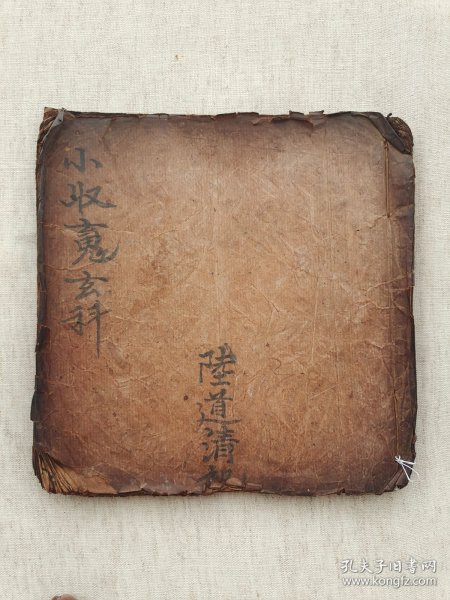 小收寃玄科
陸道清
孔夫子旧书网
www.kongfz.com